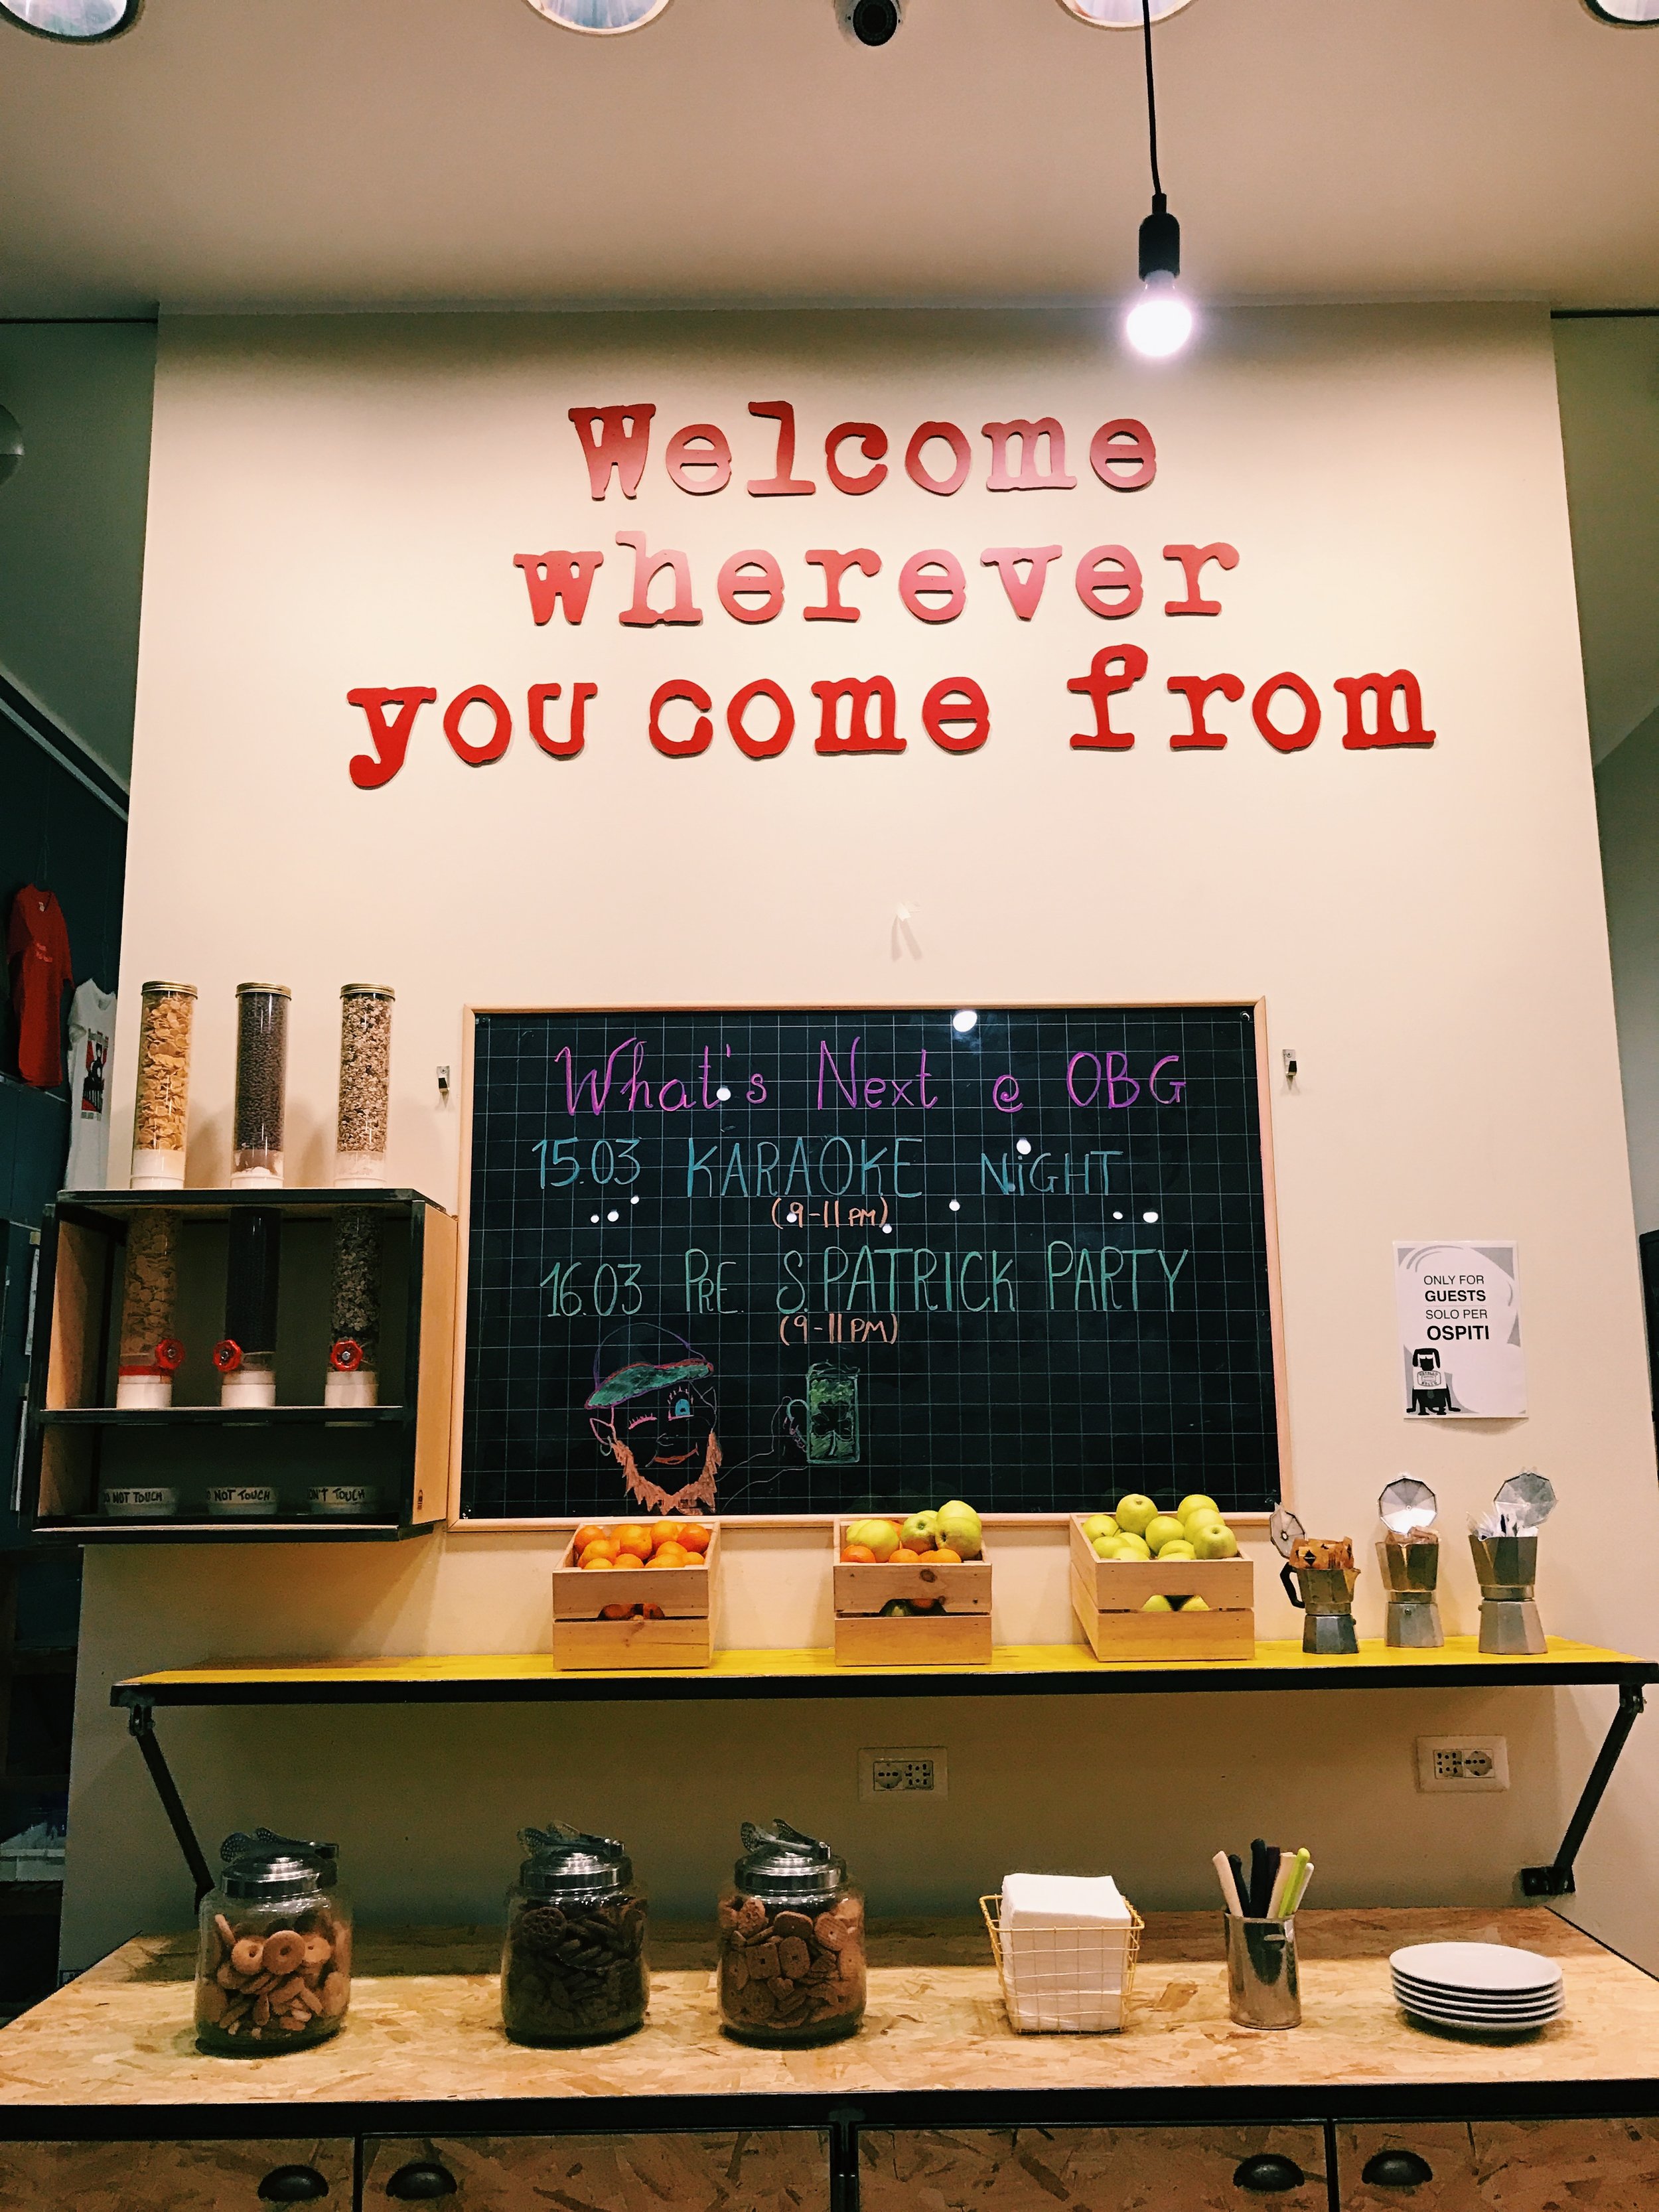 Welcome
wherever
you come from
What's Next @ OBG
15.03 KARAOKE NiGHT
(9-11 PM)
16.03 PRE S.PATRICK PARTY
(9-11 PM)
ONLY FOR
GUESTS
SOLO PER
OSPITI
DO NOT TOUCH
DO NOT TOUCH
DON'T TOUCH